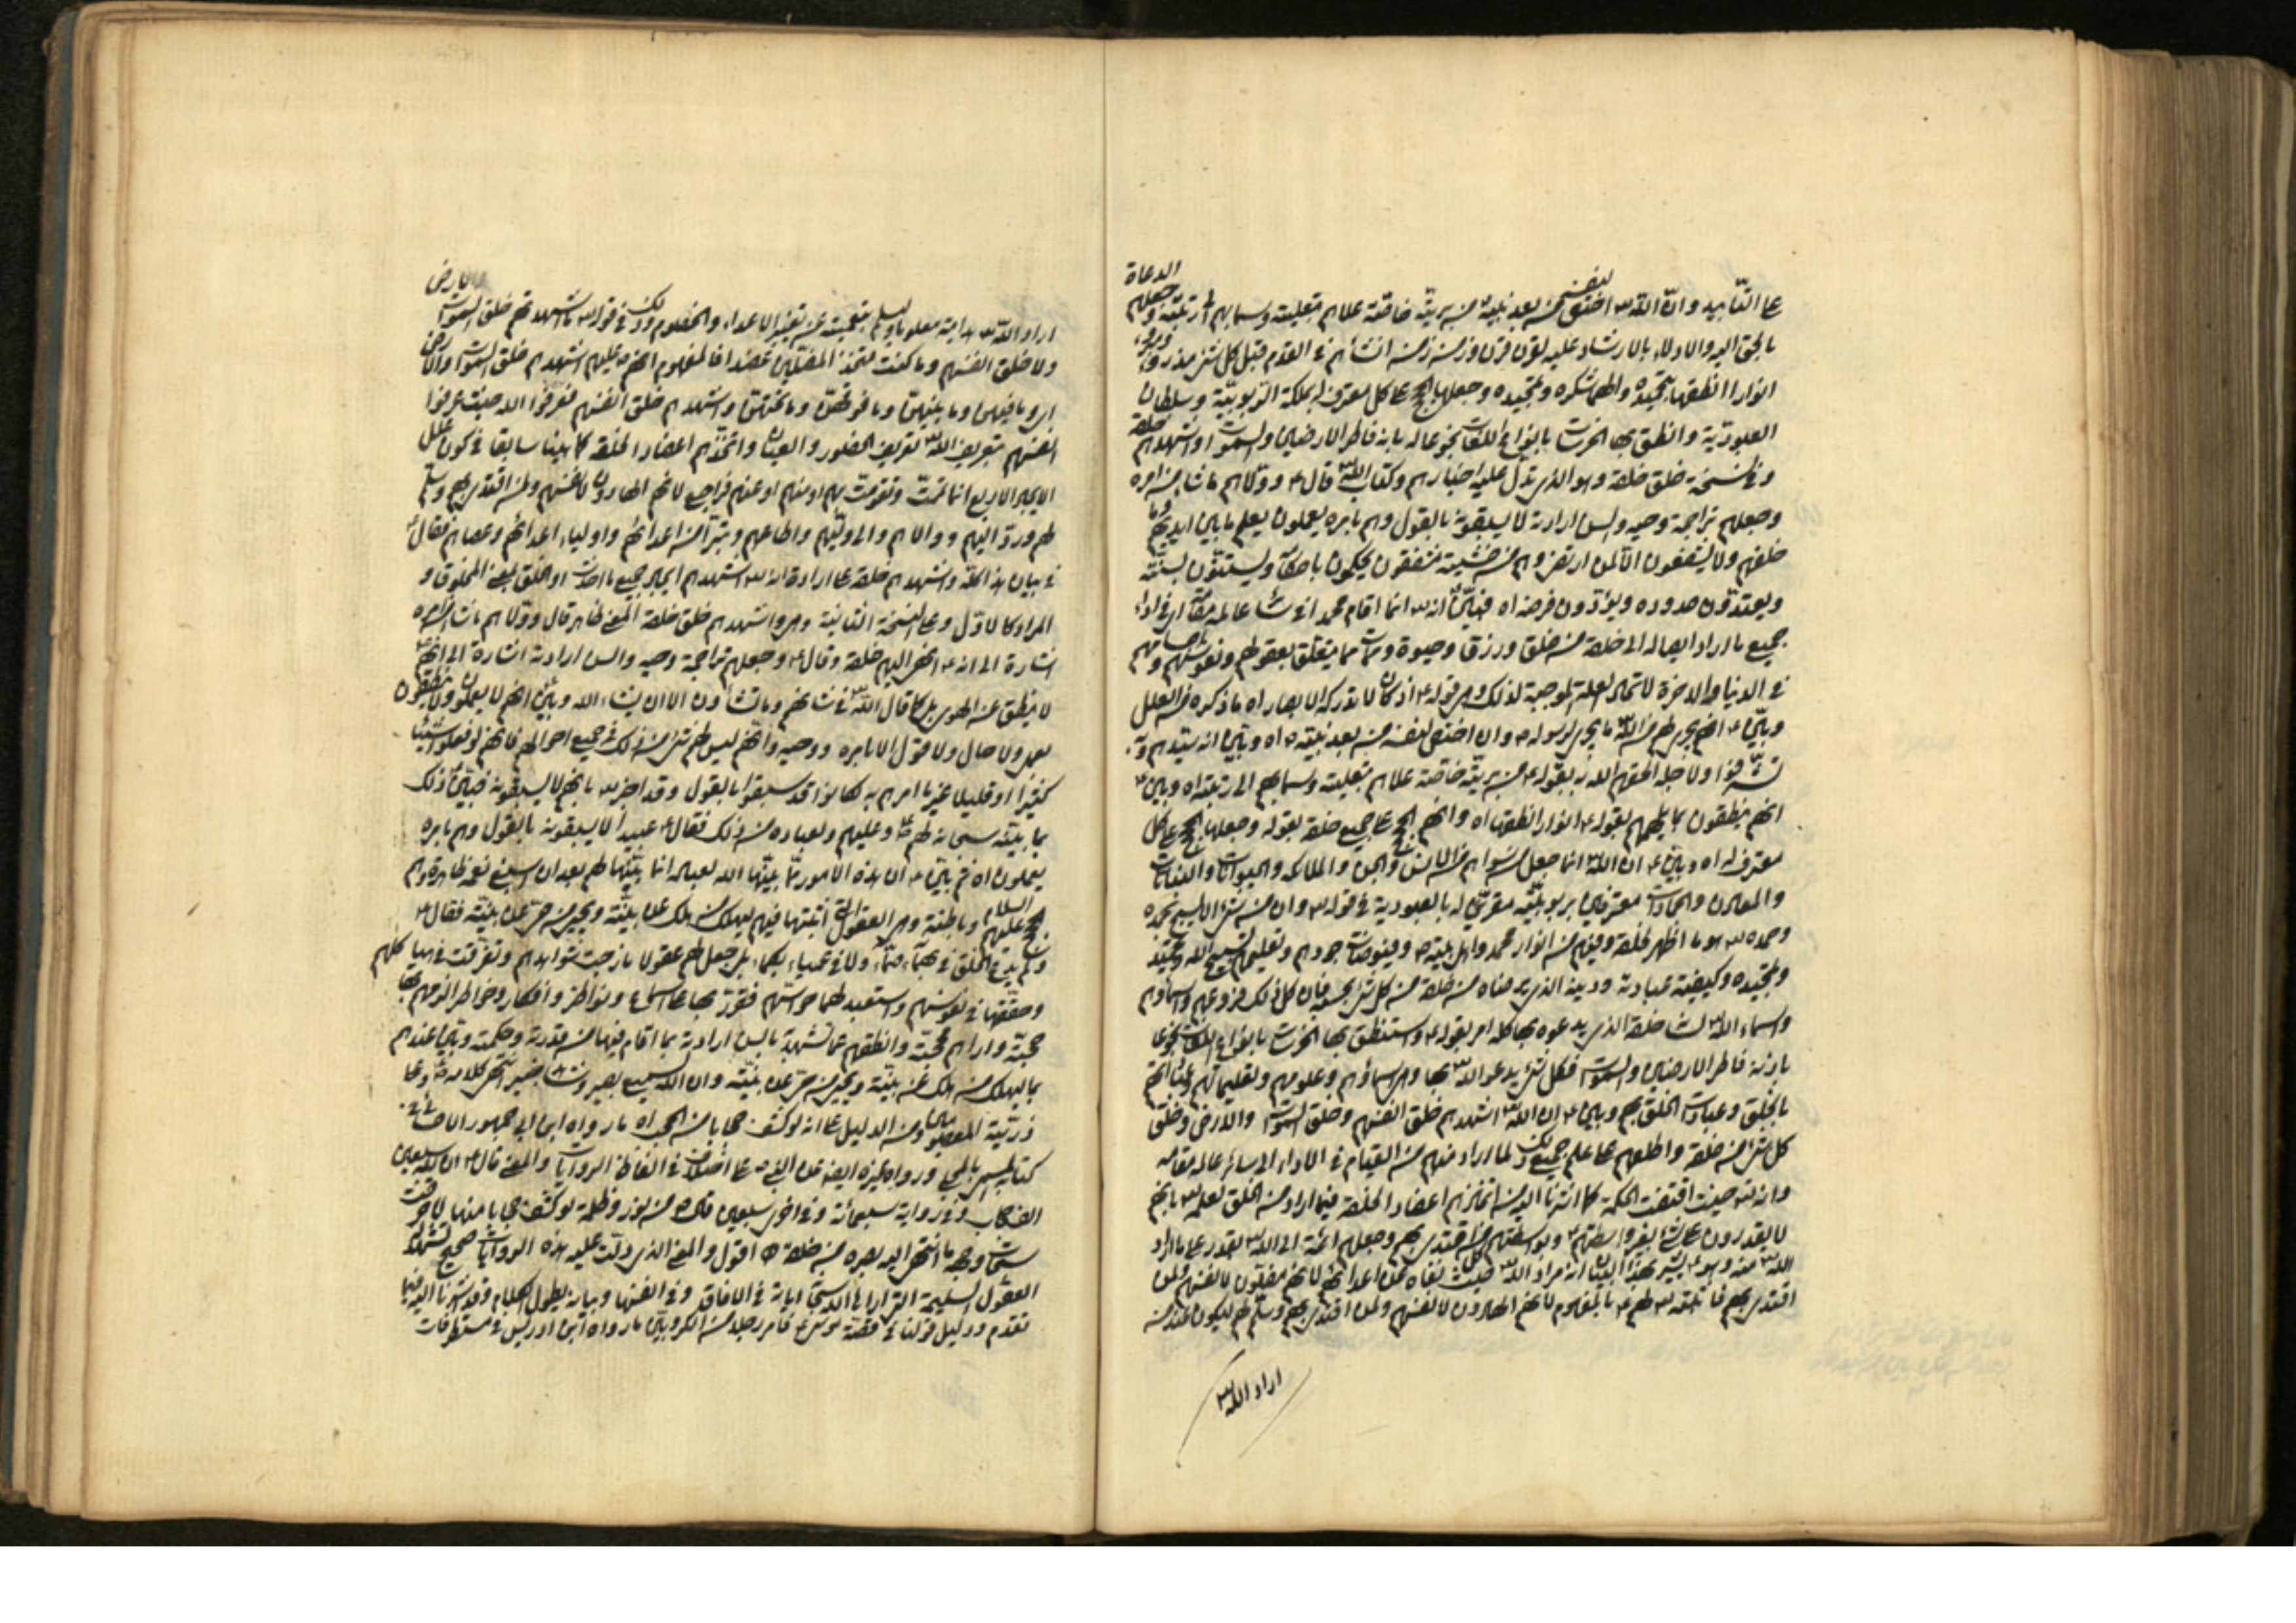 الدعاة
على التأبيد وان الله اختص لنفسه من بعد نبيه من بريته خاصة علاهم بتعليته وسما بهم الى رتبته وجعلهم
بالحق اليه والادلاء بالارشاد عليه لقرن قرن وزمن زمن انشأهم في القدم قبل كل شئ مذروء ومبروء
انوارا انطقها بتحميده والهمها شكره وتمجيده وجعلها الحجج على كل معترف له بملكة الربوبية وسلطان
العبودية وانطق بها الخرسات بانواع اللغات بخوعا له بانه فاطر الارضين والسموات واشهدهم خلقه
وفي نسخة خلق خلقه وهو الذي تدل عليه اخبارهم وكتاب الله قال وولاهم ما شاء من امره
وجعلهم تراجمة وحيه والسن ارادته لا يسبقونه بالقول وهم بامره يعملون يعلم ما بين ايديهم وما
خلفهم ولا يشفعون الا لمن ارتضى وهم من خشيته مشفقون يحكمون باحكامه ويستنون بسنته
ويعتمدون حدوده ويؤدون فرضه اه فبين انه انما اقام محمدا في سائر عالمه مقامه في اداء
جميع ما اراد ايصاله الى خلقه من خلق ورزق وحيوة وممات مما يتعلق بعقولهم ونفوسهم واجسامهم
في الدنيا والاخرة لاتحاد العلة الموجبة لذلك وهي قوله اذ كان لا تدركه الابصار اه ما ذكره من العلل
وبين انهم يجري لهم من الله ما يجري لرسوله وان اختص لنفسه من بعد نبيه اه وبين انه سيدهم وبه
شرفوا ولاجله الحقهم الله به بقوله من بريته خاصة علاهم بتعليته وسما بهم الى رتبته اه وبين
انهم ينطقون بما يلهمهم بقوله انوارا انطقها اه وانهم الحجج على جميع خلقه بقوله وجعلها الحجج على كل
معترف له اه وبين ان الله انما جعل من سواهم من الانس والجن والملائكة والحيوانات والنباتات
والمعادن والجمادات معترفين بربوبيته مقرين له بالعبودية في قوله وان من شئ الا يسبح بحمده
وحمده هو ما اظهر لخلقه وفيهم من انوار محمد واهل بيته وفيوضات جودهم وتعليمهم تسبيح الله وتحميده
وتمجيده وكيفية عبادته ودينه الذي يرضاه من خلقه من كل شئ بحسبه فان كل ذلك فروعهم واسماؤهم
واسماء الله لسائر خلقه الذي يدعوه بها كله امر بقوله واستنطق بها الخرسات بانواع اللغات بخوعا
بانه فاطر الارضين والسموات فكل شئ يدعو الله بها وهي اسماؤهم وعلومهم وتعليماتهم
بالخلق وعبادات الخلق بهم وبين ان الله اشهدهم خلق انفسهم وخلق السموات والارض وخلق
كل شئ من خلقه واطلعهم على علم جميع ذلك لما اراد منهم من القيام في الاداء الى سائر عالمه مقامه
وانه حيث اقتضت الحكمة كما اشرنا اليه من اتخاذهم اعضادا لخلقه فيما اراد من الخلق لعلمه بانهم
لا يقدرون على شئ بغير واسطتهم وبواسطتهم من اقتدى بهم وجعلهم ائمة الى الله يقدر على ما اراد
الله منه وهو يشير بهذا البيان ان مراد الله حيث نفاه عن اعدائهم لانهم مضلون لانفسهم ولمن
اقتدى بهم فاثبته لهم بالمفهوم لانهم الهادون لانفسهم ولمن اقتدى بهم وسلم لهم ليكون عندهم
اراد الله
والارض
اراد الله هداية معلوما ولم يتعجبه عن تغيير الاعداء والخصوم وذلك في قوله ما اشهدتهم خلق السموات
ولا خلق انفسهم وما كنت متخذ المضلين عضدا فالمفهوم انه اشهدهم خلق السموات والارض
اي وما فيهن وما بينهن وما فوقهن وما تحتهن واشهدهم خلق انفسهم فعرفوا الله حيث عرفوا
انفسهم بتعريف الله تعريف الحضور والعيان واتخذهم اعضادا لخلقه كما بينا سابقا في كون علل
الايجاد الاربع انما تمت وتقومت بهم او منهم او عنهم فراجع لانهم الهادون لانفسهم ولمن اقتدى بهم وسلم
لهم ورد اليهم ووالاهم ووالى وليهم واطاعهم وتبرأ من اعدائهم واولياء اعدائهم وعصاهم فقال
في بيان هذا كله واشهدهم خلقه على ارادة انه اشهدهم ايجاد جميع ما احدث او الخلق بمعنى المخلوق و
المراد كالاول وعلى النسخة الثانية وهي واشهدهم خلق خلقه المعنى ظاهر قال وولاهم ما شاء من امره
اشارة الى انه انهى اليهم خلقه وقال وجعلهم تراجمة وحيه والسن ارادته اشارة الى انهم
لا ينطق عن الهوى بل كما قال الله في شانهم وما تشاؤن الا ان يشاء الله وبين انهم لا يعملون ولا ينطقون
بعمل ولا حال ولا قول الا بامره ووحيه وانهم ليس لهم شئ من ذلك في جميع احوالهم فانهم لو فعلوا شيئا
كثيرا او قليلا غير ما امرهم به لكانوا قد سبقوا بالقول وقد اخبر بانهم لا يسبقونه فبين ذلك
بما بينه سبحانه لهم وعليهم ولعباده من ذلك فقال عبيدا لا يسبقونه بالقول وهم بامره
يعملون اه ثم بين ان هذه الامور مما بينها الله لعباده انما بينها لهم بعد ان اسبغ نعمه ظاهرة وهم
الحجج عليهم السلام وباطنة وهي العقول التي اثبتها فيهم ليهلك من هلك عن بينة ويحيى من حي عن بينة فقال
ولم يدع الخلق في بهماء صماء ولا في عمياء بكماء بل جعل لهم عقولا مازجت شواهدهم وتفرقت في هياكلهم
وحققها في نفوسهم واستعبد لها حواسهم فقرر بها على اسماع ونواظر وافكار وخواطر الزمهم بها
حجته واراهم محجته وانطقهم عما تشهد به بالسن ارادته بما اقام فيها من قدرته وحكمته وبين عندهم
بها ليهلك من هلك عن بينة ويحيى من حي عن بينة وان الله لسميع بصير وشاهد خبير انتهى كلامه وعلى
ذريته المعصومين ومن الدليل على انه لو كشف حجابا من الحجب اه ما رواه ابن ابي جمهور الاحسائي في
كتاب المسمى بالمجلي ورواه غيره ايضا عن النبي على اختلاف في الفاظ الروايات والمعنى قال ان لله سبعين
الف حجاب وفي رواية سبعمائة وفي اخرى سبعين حجابا من نور وظلمة لو كشف حجابا منها لاحرقت
سبحات وجهه ما انتهى اليه بصره من خلقه اقول والمعنى الذي دلت عليه هذه الروايات صحيح تشهد له
العقول السليمة التي اراها الله سبحانه اياته في الافاق وفي انفسها وبيانه يطول به الكلام وقد اشرنا اليه فيما
تقدم ودليل قولنا في قصة موسى فامر رجلا من الكروبيين ما رواه ابن ادريس في مستطرفات